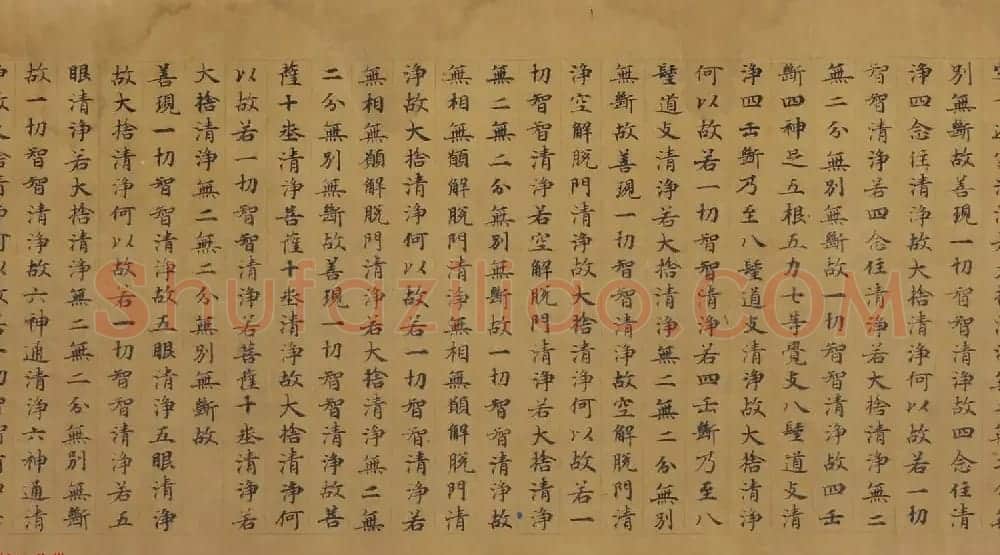 別無斷故善現一切智智清淨故四念住清
淨四念住清淨故大捨清淨何以故若一切
智智清淨若四念住清淨若大捨清淨無二
無二分無別無斷故一切智智清淨故四正
斷四神足五根五力七等覺支八聖道支清
淨四正斷乃至八聖道支清淨故大捨清淨
何以故若一切智智清淨若四正斷乃至八
聖道支清淨若大捨清淨無二無二分無別
無斷故善現一切智智清淨故空解脫門清
淨空解脫門清淨故大捨清淨何以故若一
切智智清淨若空解脫門清淨若大捨清淨
無二無二分無別無斷故一切智智清淨故
無相無願解脫門清淨無相無願解脫門清
淨故大捨清淨何以故若一切智智清淨若
無相無願解脫門清淨若大捨清淨無二無
二分無別無斷故善現一切智智清淨故菩
薩十埊清淨菩薩十埊清淨故大捨清淨何
以故若一切智智清淨若菩薩十埊清淨若
大捨清淨無二無二分無別無斷故
善現一切智智清淨故五眼清淨五眼清淨
故大捨清淨何以故若一切智智清淨若五
眼清淨若大捨清淨無二無二分無別無斷
故一切智智清淨故六神通清淨六神通清
Shufaziliao.COM